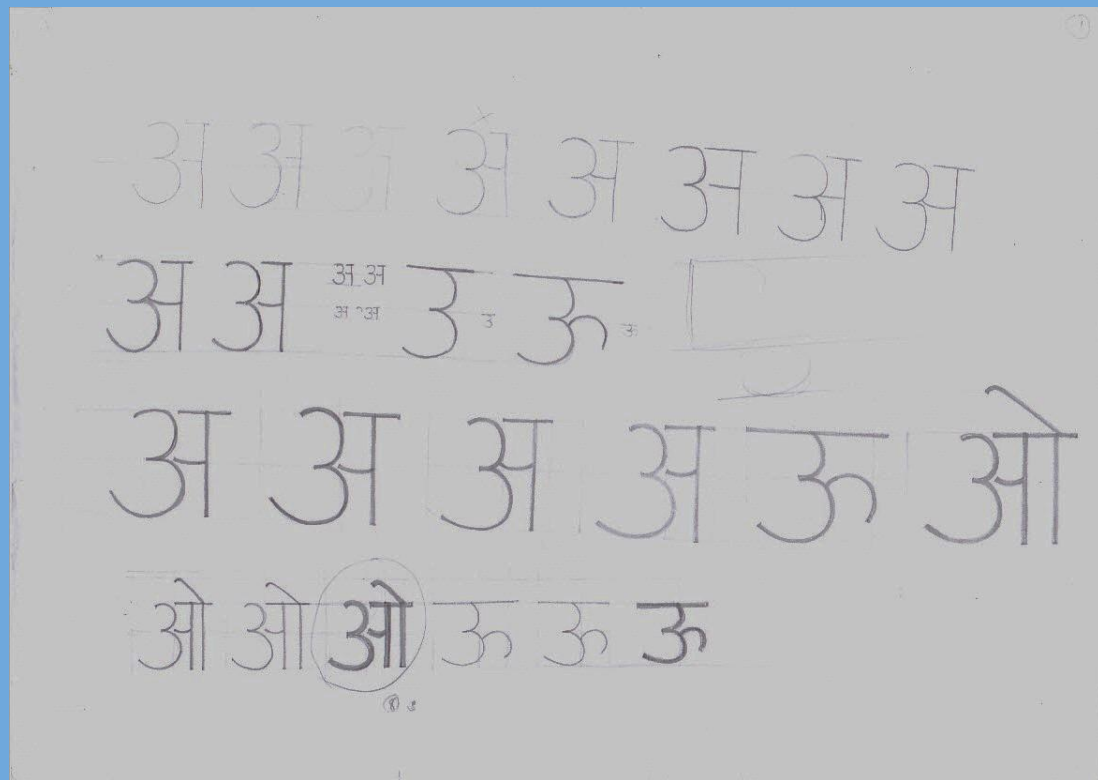 अ अ अ अ अ अ अ अ
अ अ अ अ उ उ ऊ ऊ
अ अ
अ अ अ अ ऊ ओ
ओ ओ ओ ऊ ऊ ऊ